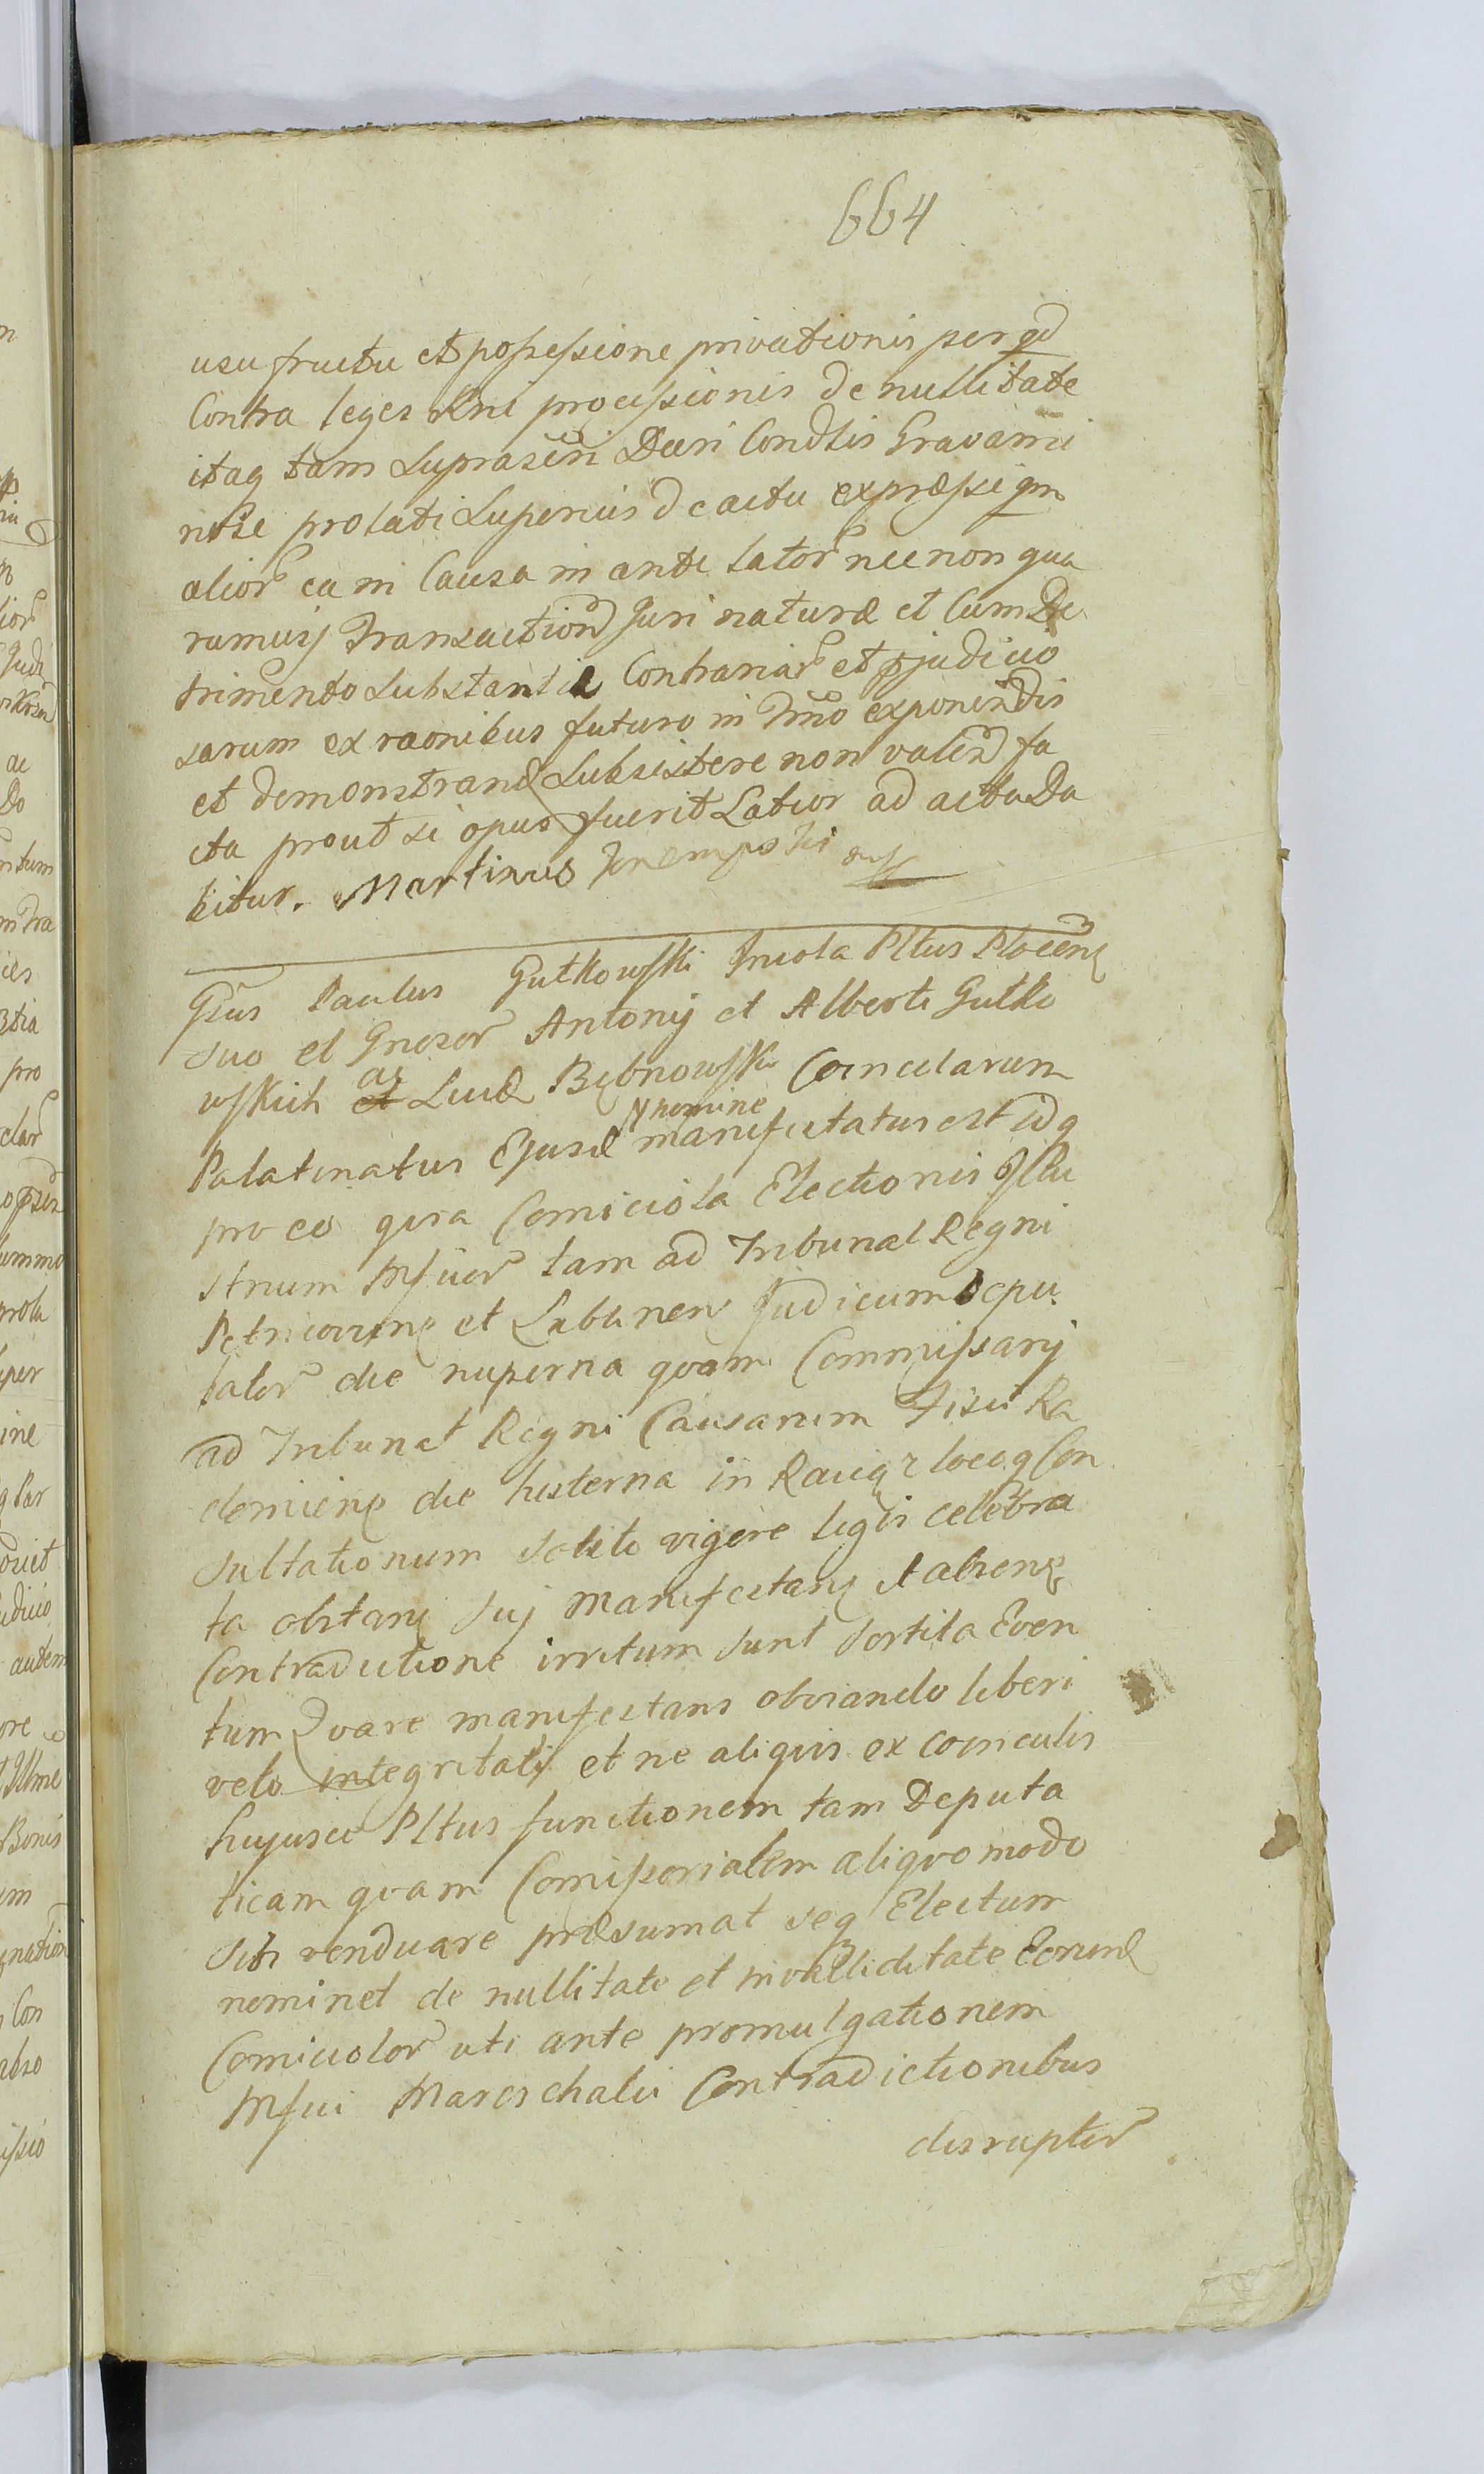 664
usufructu et possessione privationis per qd
Contra leges Rni processionis de nullitate
itaq tam Suprascri Decri Condtis Gravami
nose prolati Superius de actu expresse qm
alior ea in Causa in ante lator nec non qua
rumvis Transaction Juri naturæ et Cum De
trimento Substantiæ Contrariar et pjudicio
sarum ex raonibus futuro in Trno exponendis
et demonstrand Subsistere non valen fa
cta prout si opus fuerit Latior ad acta Da
bitur. Martinus
Gsus Paulus Gutkowski Incola Pltus Plocen
suo et Gnosor Antonij et Alberti Gutko
wskich ac Luc Bębnowski Coincolarum
Palatinatus Ejusd nomine manifestatus est idq
pro eo quia Comiciola Electionis Illu
strium Mfcor tam ad Tribunal Regni
Petricovien et Lublinen Judicum Depu
tator die nuperna quam Commissarij
ad Tribunal Regni Causarum Fisci Ra
domien die hesterna in Raciąż locoq Con
sultationum solito vigore legis celebra
ta obstan suj Manifestan et absen
Contradictione irritum sunt sortita Even
tum Quare manifestans obviando liberi
veto integritati et ne aliquis ex coincolis
hujusce Pltus functionem tam Deputa
ticam quam Comissorialem aliquo modo
sibi venduare præsumat seq Electum
nominet de nullitate et invalliditate Eorund
Comiciolor uti ante promulgationem
Mfci Mareschalci Contradictionibus
disruptor